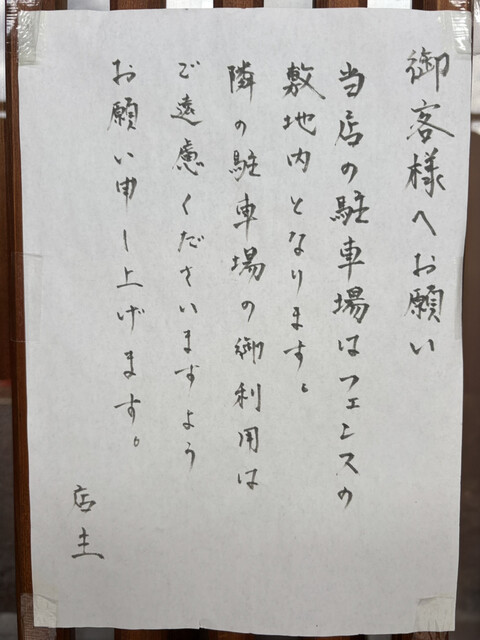 御客様へお願い
当店の駐車場はフェンスの
敷地内となります。
隣の駐車場の御利用は
ご遠慮くださいますよう
お願い申し上げます。
店主